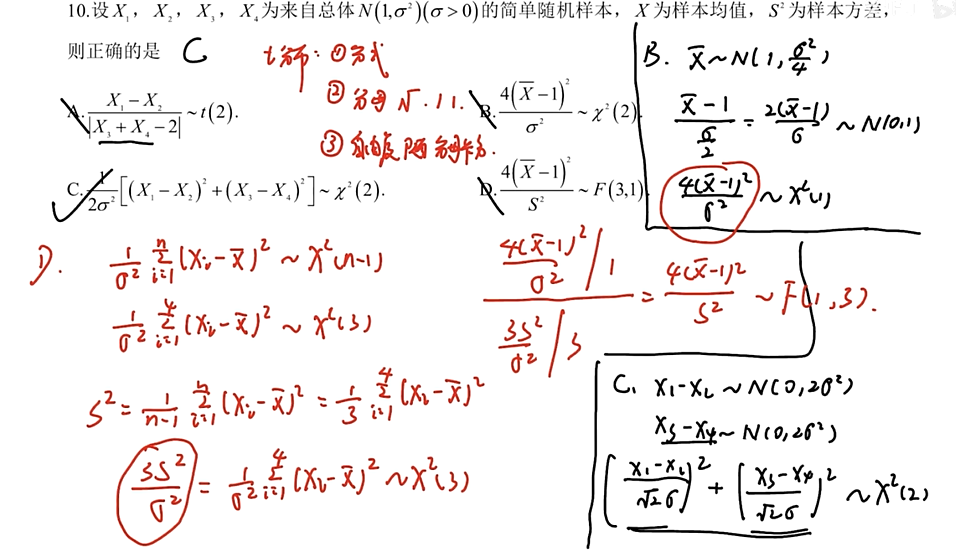 10.设X₁，X₂，X₃，X₄为来自总体N(1,σ²)(σ>0)的简单随机样本，X̄为样本均值，S²为样本方差，
则正确的是 C
t分布：①分式
②分母√.11.
③自由度 分母卡方.
A. (X₁－X₂)/|X₃＋X₄－2| ~ t(2).
B. 4(X̄－1)²/σ² ~ χ²(2).
C. 1/(2σ²)[(X₁－X₂)²＋(X₃－X₄)²] ~ χ²(2).
D. 4(X̄－1)²/S² ~ F(3,1).
B. X̄~N(1, σ²/4)
(X̄－1)/(σ/2) = 2(X̄-1)/σ ~ N(0,1)
4(X̄-1)²/σ² ~ χ²(1)
D. 1/σ² Σⁿᵢ₌₁(Xᵢ-X̄)² ~ χ²(n-1)
1/σ² Σ⁴ᵢ₌₁(Xᵢ-X̄)² ~ χ²(3)
S² = 1/(n-1) Σⁿᵢ₌₁(Xᵢ-X̄)² = 1/3 Σ⁴ᵢ₌₁(Xᵢ-X̄)²
3S²/σ² = 1/σ² Σ⁴ᵢ₌₁(Xᵢ-X̄)² ~ χ²(3)
(4(X̄-1)²/σ² / 1)/(3S²/σ² / 3) = 4(X̄-1)²/S² ~ F(1,3).
C. X₁-X₂ ~ N(0,2σ²)
X₃-X₄ ~ N(0,2σ²)
((X₁-X₂)/√2σ)² + ((X₃-X₄)/√2σ)² ~ χ²(2)